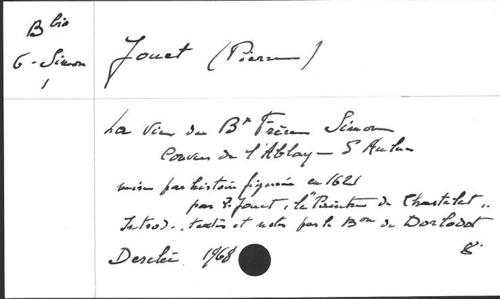 Bbio
G - Simon
1
Jouet (Pierre)
La vie du Bx Frère Simon
Convers de l'Abbaye d'Aulne
mise par histoire figurée en 1621
par P. Jouet, le "Peintre de Chastelet".
Introd., textes et notes par le Bon de Dorlodot
Desclée 1968
8°